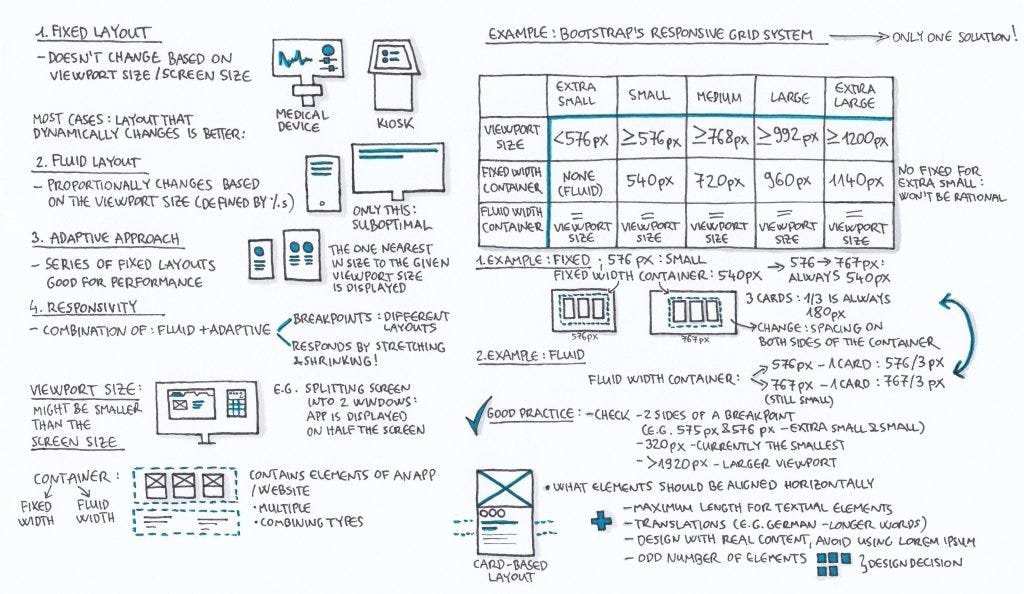 1. FIXED LAYOUT
- DOESN'T CHANGE BASED ON
VIEWPORT SIZE / SCREEN SIZE
MEDICAL
DEVICE
KIOSK
MOST CASES: LAYOUT THAT
DYNAMICALLY CHANGES IS BETTER:
2. FLUID LAYOUT
- PROPORTIONALLY CHANGES BASED
ON THE VIEWPORT SIZE (DEFINED BY %s)
ONLY THIS:
SUBOPTIMAL
3. ADAPTIVE APPROACH
- SERIES OF FIXED LAYOUTS
GOOD FOR PERFORMANCE
THE ONE NEAREST
IN SIZE TO THE GIVEN
VIEWPORT SIZE
IS DISPLAYED
4. RESPONSIVITY
- COMBINATION OF: FLUID + ADAPTIVE
BREAKPOINTS: DIFFERENT
LAYOUTS
RESPONDS BY STRETCHING
& SHRINKING!
VIEWPORT SIZE:
MIGHT BE SMALLER
THAN THE
SCREEN SIZE
E.G. SPLITTING SCREEN
INTO 2 WINDOWS:
APP IS DISPLAYED
ON HALF THE SCREEN
CONTAINER:
FIXED WIDTH
FLUID WIDTH
CONTAINS ELEMENTS OF AN APP
/WEBSITE
• MULTIPLE
• COMBINING TYPES
EXAMPLE: BOOTSTRAP'S RESPONSIVE GRID SYSTEM → ONLY ONE SOLUTION!
EXTRA SMALL SMALL MEDIUM LARGE EXTRA LARGE
VIEWPORT SIZE <576px ≥576px ≥768px ≥992px ≥1200px
FIXED WIDTH CONTAINER NONE (FLUID) 540px 720px 960px 1140px
FLUID WIDTH CONTAINER = VIEWPORT SIZE = VIEWPORT SIZE = VIEWPORT SIZE = VIEWPORT SIZE = VIEWPORT SIZE
NO FIXED FOR
EXTRA SMALL:
WON'T BE RATIONAL
1. EXAMPLE: FIXED ; 576 px: SMALL
FIXED WIDTH CONTAINER: 540px
→ 576 → 767px:
ALWAYS 540px
576px
767px
3 CARDS: 1/3 IS ALWAYS
180px
→ CHANGE: SPACING ON
BOTH SIDES OF THE CONTAINER
2. EXAMPLE: FLUID
FLUID WIDTH CONTAINER:
576px - 1 CARD: 576/3 px
767px - 1 CARD: 767/3 px
(STILL SMALL)
GOOD PRACTICE: - CHECK - 2 SIDES OF A BREAKPOINT
(E.G. 575px & 576 px - EXTRA SMALL & SMALL)
- 320px - CURRENTLY THE SMALLEST
- >1920px - LARGER VIEWPORT
CARD-BASED
LAYOUT
• WHAT ELEMENTS SHOULD BE ALIGNED HORIZONTALLY
- MAXIMUM LENGTH FOR TEXTUAL ELEMENTS
- TRANSLATIONS (E.G. GERMAN - LONGER WORDS)
- DESIGN WITH REAL CONTENT, AVOID USING LOREM IPSUM
- ODD NUMBER OF ELEMENTS } DESIGN DECISION